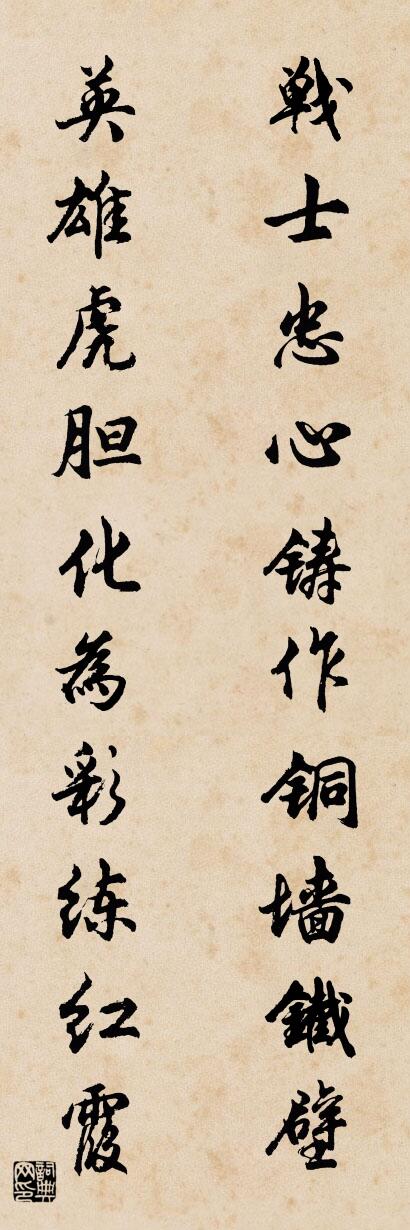 戦士忠心铸作铜墙鐵壁
英雄虎胆化為彩练红霞
詞典网印